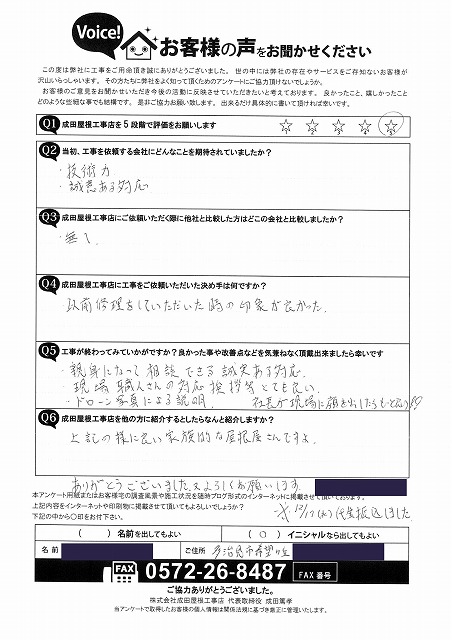 Voice!
お客様の声をお聞かせください
この度は弊社に工事をご用命頂き誠にありがとうございました。 世の中には弊社の存在やサービスをご存知ないお客様が
沢山いらっしゃいます。 その方たちに弊社をよく知って頂くためのアンケートにご協力頂けないでしょうか。
お客様のご意見をお聞かせいただき今後の活動に反映させていただきたいと考えております。 良かったこと、嬉しかったこと
どのような些細な事でも結構です。 是非ご協力お願い致します。 出来るだけ具体的に書いて頂ければ幸いです。
Q1 成田屋根工事店を5段階で評価をお願いします
1 2 3 4 5
Q2 当初、工事を依頼する会社にどんなことを期待されていましたか?
・技術力
・誠意ある対応
Q3 成田屋根工事店にご依頼いただく際に他社と比較した方はどこの会社と比較しましたか?
・無し
Q4 成田屋根工事店に工事をご依頼いただいた決め手は何ですか?
以前修理をしていただいた時の印象が良かった。
Q5 工事が終わってみていかがですか?良かった事や改善点などを気兼ねなく頂戴出来ましたら幸いです
・親身になって相談できる誠実ある対応。
・現場職人さんの対応挨拶等とても良い。
・ドローン写真による説明。 社長が現場に顔を出したらもっと良い
Q6 成田屋根工事店を他の方に紹介するとしたらなんと紹介しますか?
上記の様に良い家族的な屋根屋さんですよ。
ありがとうございました。よろしくお願いします
本アンケート用紙またはお客様宅の調査風景や施工状況を随時ブログ形式のインターネットに掲載させて頂いております。
上記内容をインターネットや印刷物に掲載させて頂いてもよろしいでしょうか?
下記の中から〇印をお付下さい。
※12/17(火)代金振込しました
( ) 名前を出してもよい
(○) イニシャルなら出してもよい
名前
ご住所 多治見市希望ヶ丘
FAX 0572-26-8487 FAX 番号
ご協力ありがとうございました。
株式会社成田屋根工事店 代表取締役 成田篤孝
当アンケートで取得したお客様の個人情報は関係法規に基づき厳正に管理いたします。